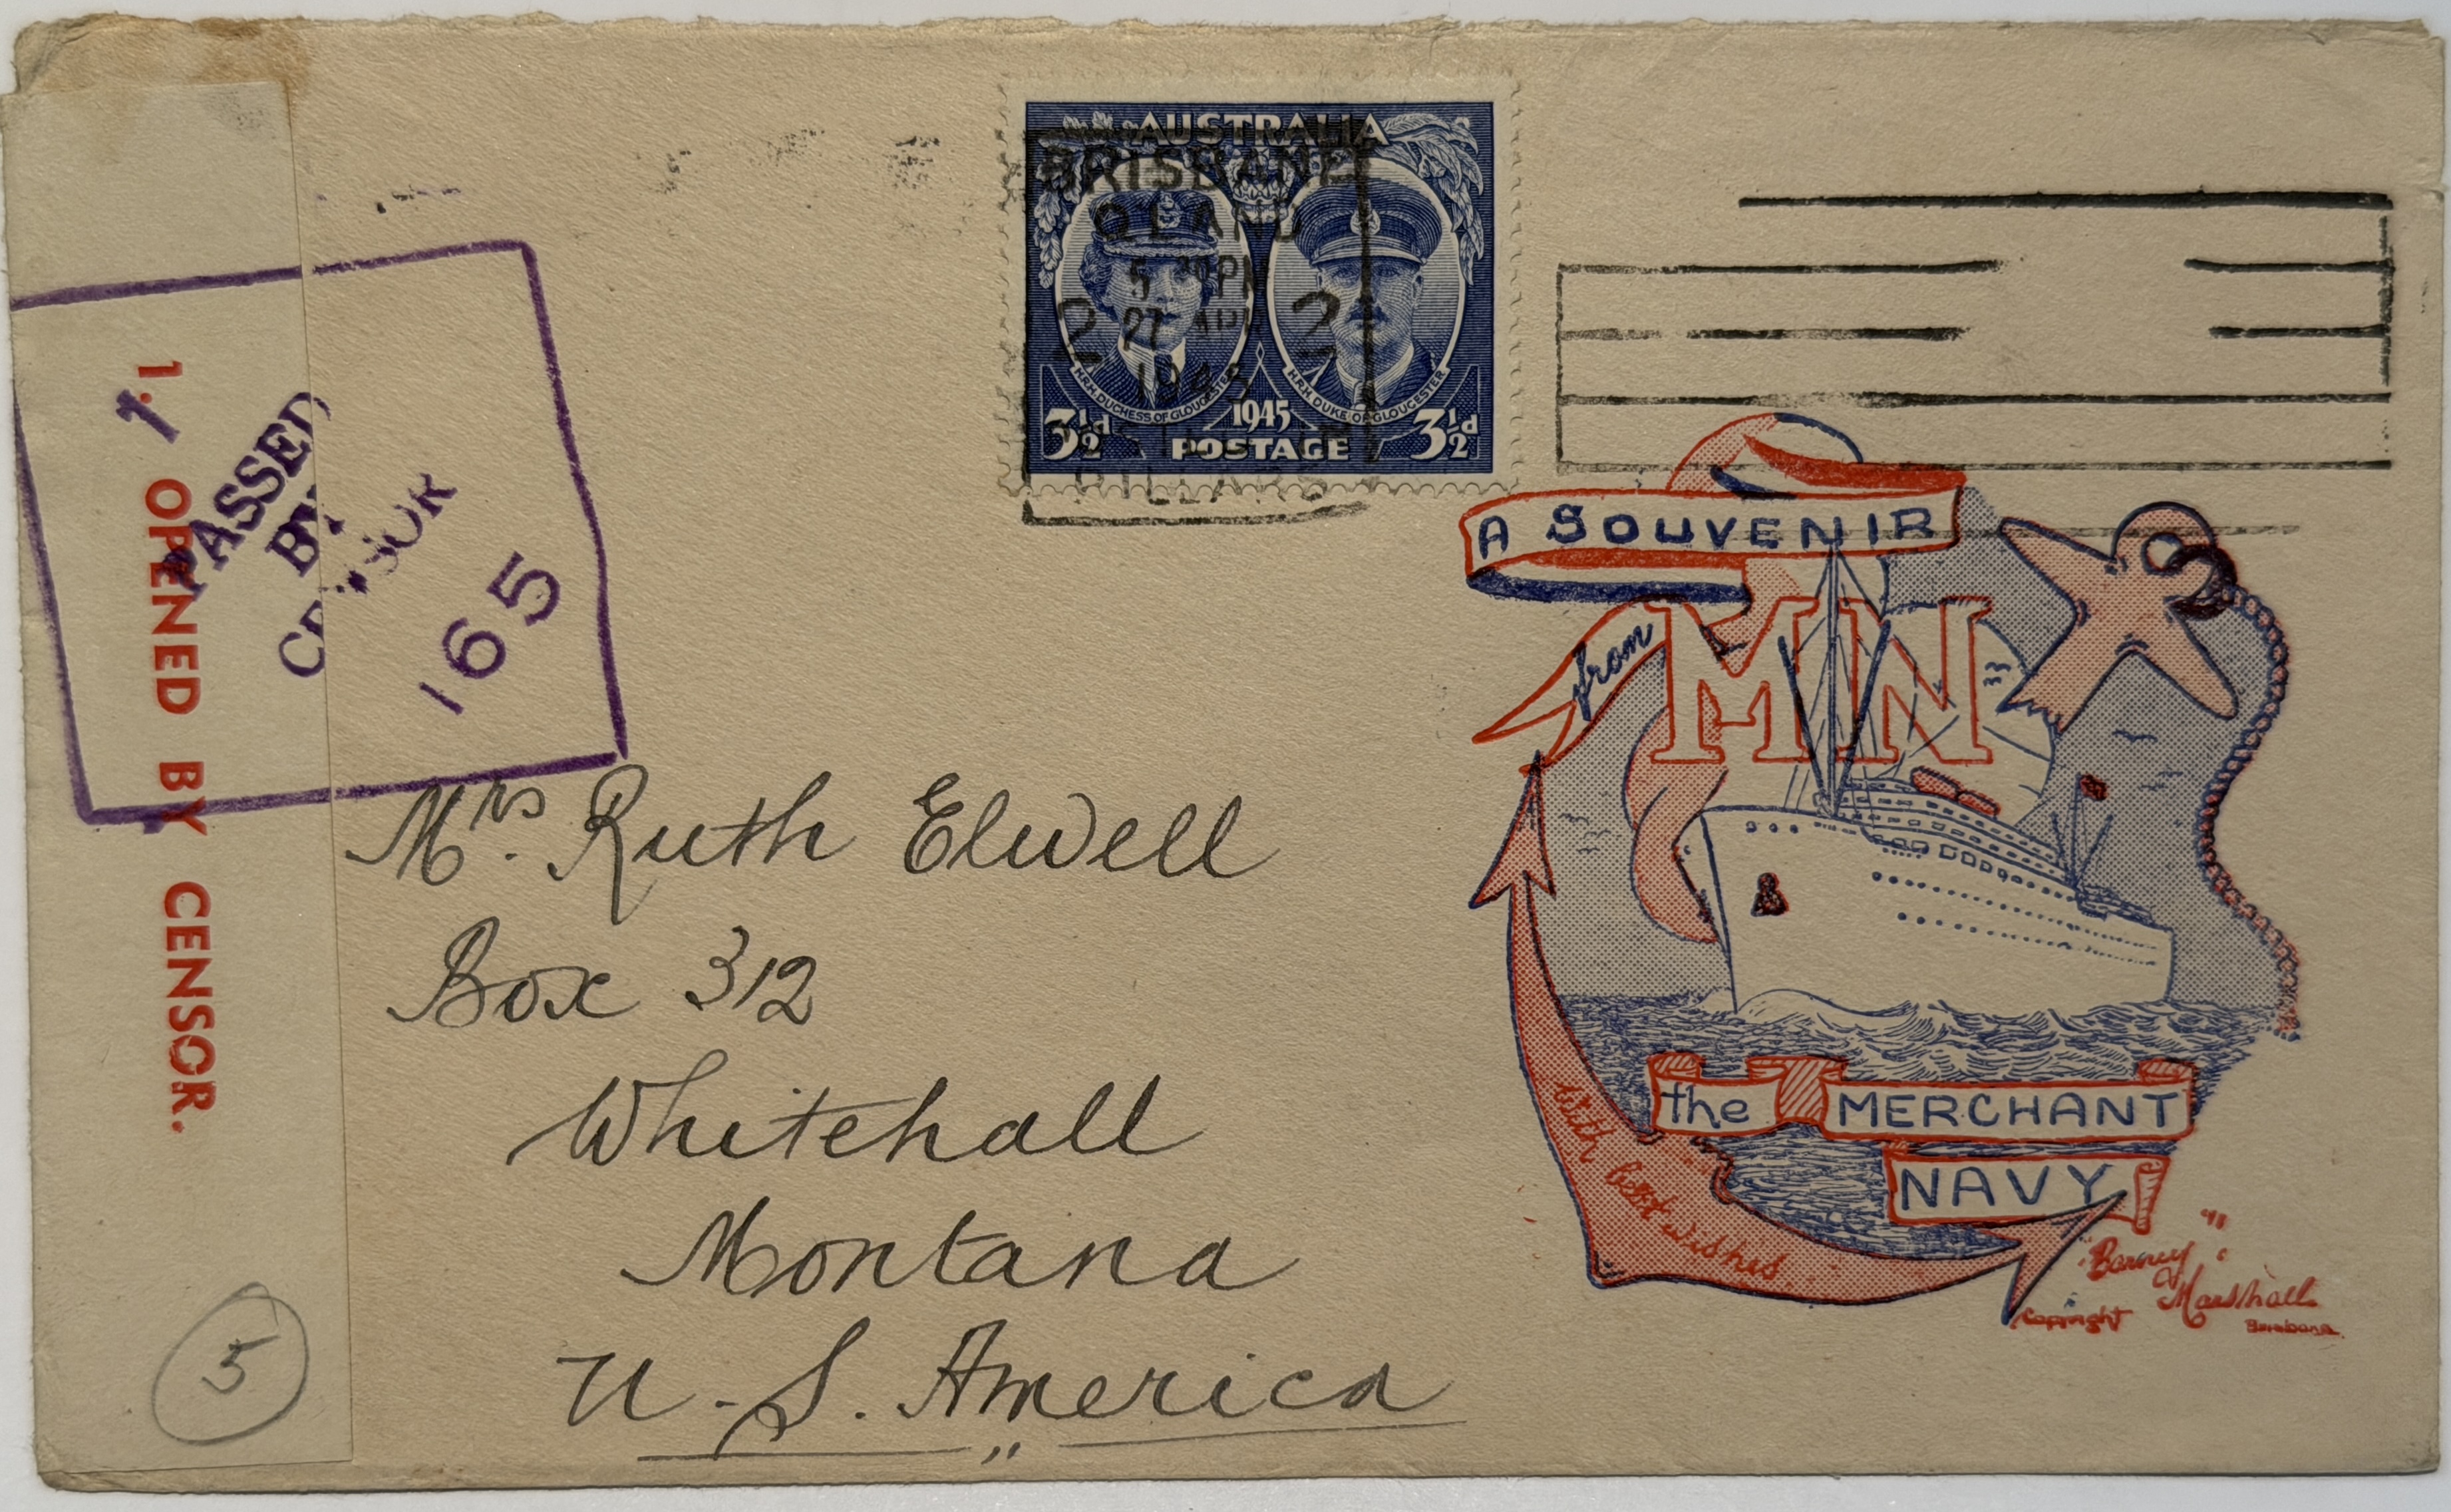 AUSTRALIA
BRISBANE
QLAND
5 30 PM
2 27 APR 2
1945
H.R.H. DUCHESS OF GLOUCESTER
H.R.H. DUKE OF GLOUCESTER
3½d 1945 3½d
POSTAGE
1.
OPENED BY CENSOR.
1
PASSED
BY
CENSOR
165
A SOUVENIR
from MN
the MERCHANT
NAVY
with best wishes
"Barney"
Marshall
Copyright Brisbane
Mrs. Ruth Elwell
Box 312
Whitehall
Montana
U.S. America
5